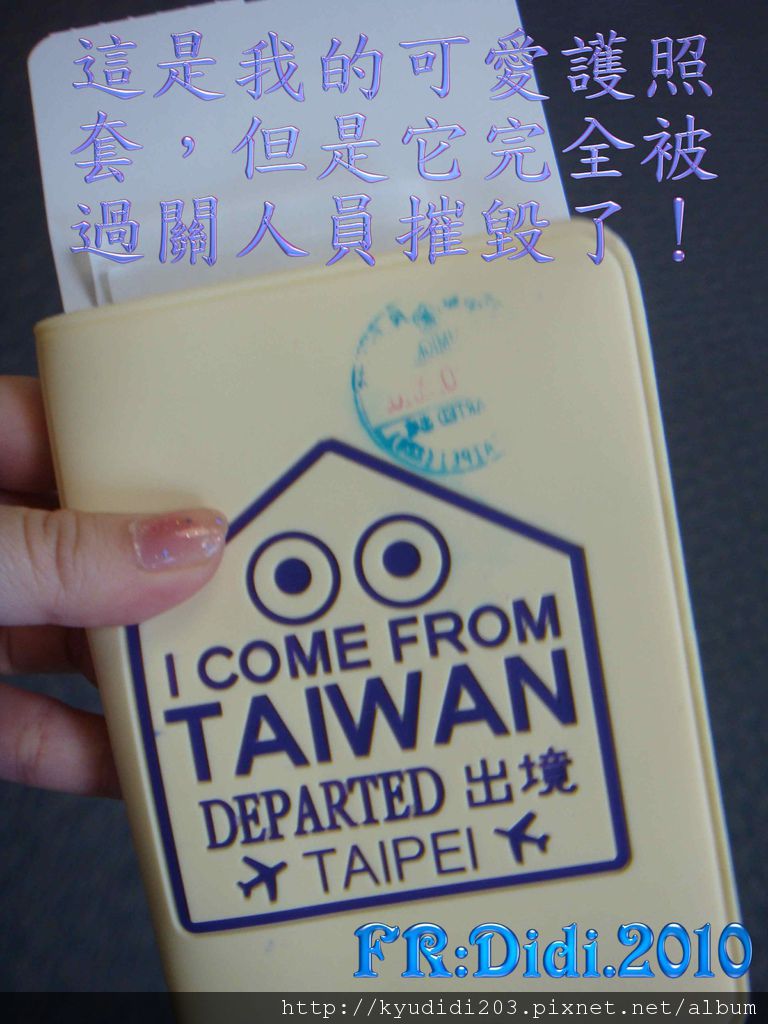 這是我的可愛護照
套，但是它完全被
過關人員摧毀了！
I COME FROM
TAIWAN
DEPARTED 出境
TAIPEI
FR:Didi.2010
http://kyudidi203.pixnet.net/album